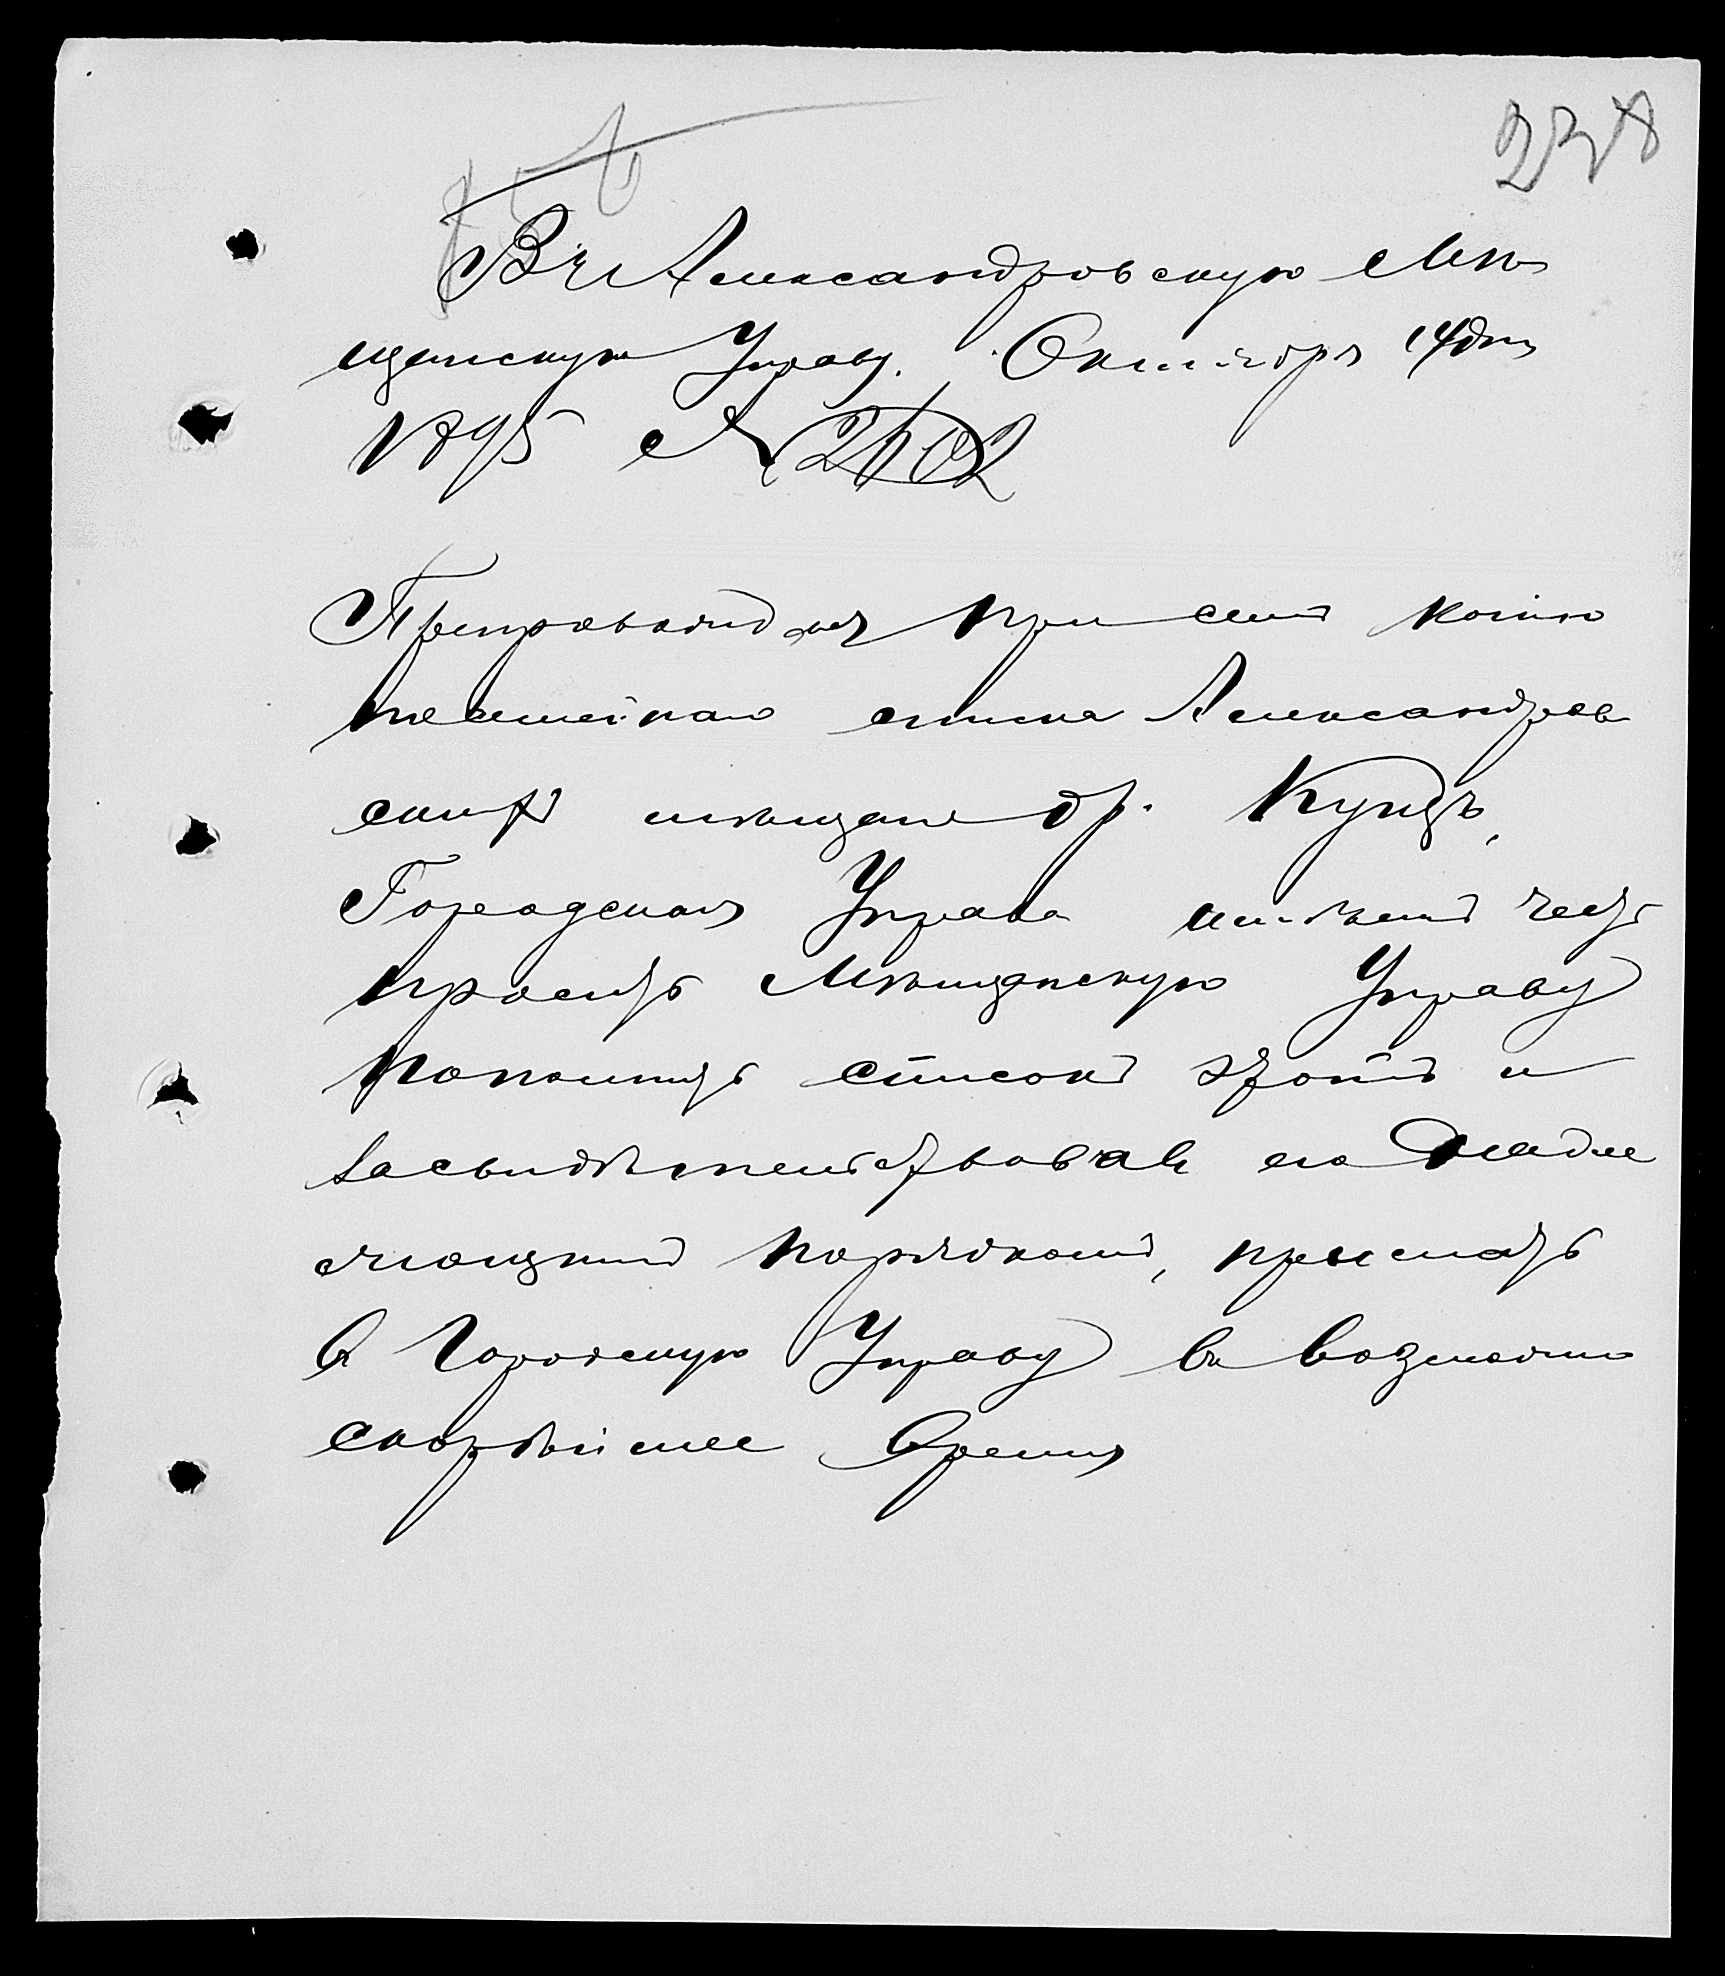 238
Въ Александровскую Мѣ
щанскую Управу. Октября 14 дня
1895 № 2602
Препровождая при семъ копію
посемейнаго списка Александров
скихъ мѣщанъ др. Кунцъ,
Городская Управа имѣетъ честь
просить Мѣщанскую Управу
пополнить списокъ этотъ и
засвидѣтельствовавъ его надле
жащимъ порядкомъ, прислать
въ Городскую Управу въ возможно
скорѣйшее время